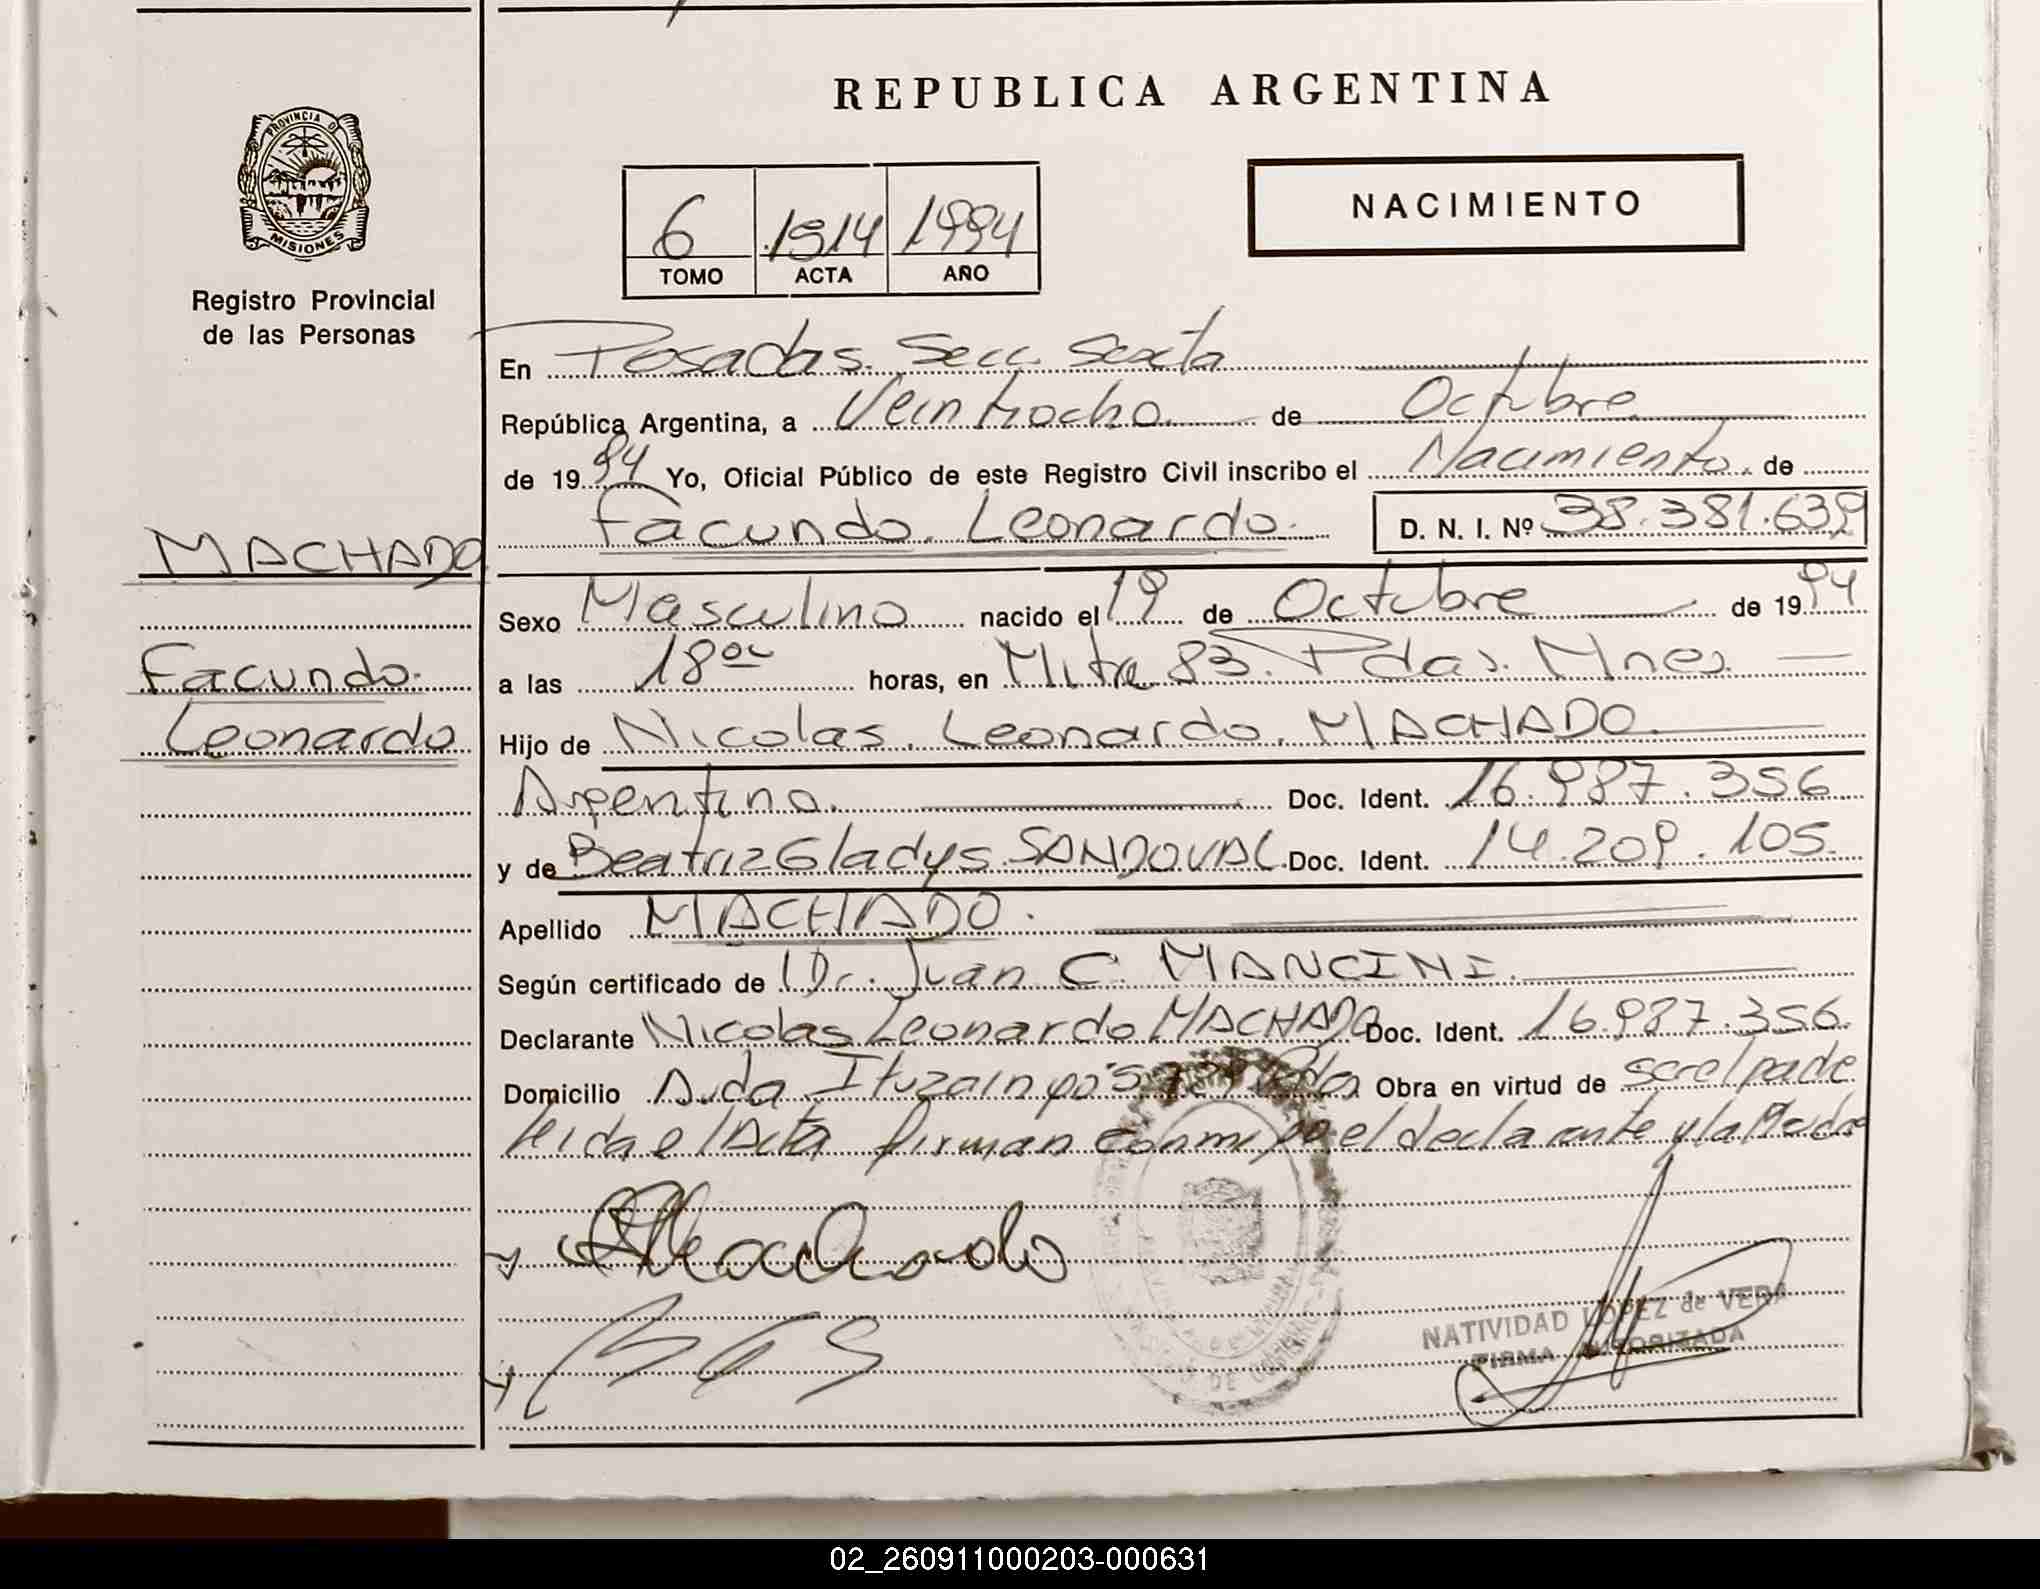 REPUBLICA ARGENTINA
PROVINCIA DE
MISIONES
Registro Provincial
de las Personas
6 1914 1994
TOMO ACTA AÑO
NACIMIENTO
En Posadas. Secc. Sexta
República Argentina, a Veintiocho de Octubre
de 1994 Yo, Oficial Público de este Registro Civil inscribo el Nacimiento de
Facundo Leonardo D. N. I. Nº 38.381.639
MACHADO
Facundo
Leonardo
Sexo Masculino nacido el 19 de Octubre de 1994
a las 18 horas, en Mitre 83. Pdas. Mnes.
Hijo de Nicolas Leonardo MACHADO
Argentino. Doc. Ident. 16.987.356
y de Beatriz Gladys SANDOVAL Doc. Ident. 14.209.105.
Apellido MACHADO.
Según certificado de Dr. Juan C. MANCINI.
Declarante Nicolas Leonardo MACHADO Doc. Ident. 16.987.356.
Domicilio Avda Ituzaingo Obra en virtud de ser el padre
leida el Acta firman conmigo el declarante y la Madre
Machado
BGS
NATIVIDAD LOPEZ de VERA
FIRMA AUTORIZADA
02_260911000203-000631